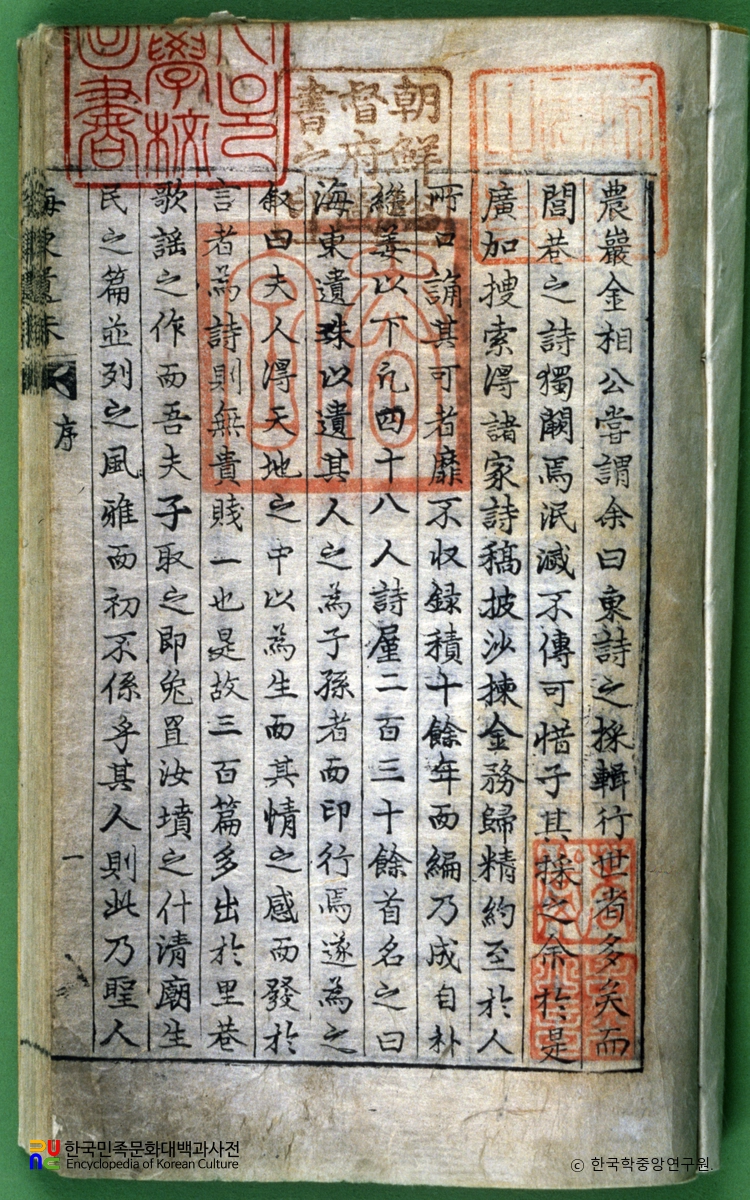 農巖金相公嘗謂余曰東詩之採輯行世者多矣而
閭巷之詩獨闕焉泯滅不傳可惜子其採之余於是
廣加搜索得諸家詩稿披沙揀金務歸精約至於人
所口誦其可者靡不收録積十餘年而編乃成自朴
繼姜以下凡四十八人詩厪二百三十餘首名之曰
海東遺珠以遺其人之為子孫者而印行焉遂為之
叙曰夫人得天地之中以為生而其情之感而發於
言者為詩則無貴賤一也是故三百篇多出於里巷
歌謡之作而吾夫子取之即兔罝汝墳之什清廟生
民之篇並列之風雅而初不係乎其人則此乃聖人
海東遺珠 序 一
朝鮮
督府
書之
學校
書
한국민족문화대백과사전
Encyclopedia of Korean Culture
© 한국학중앙연구원